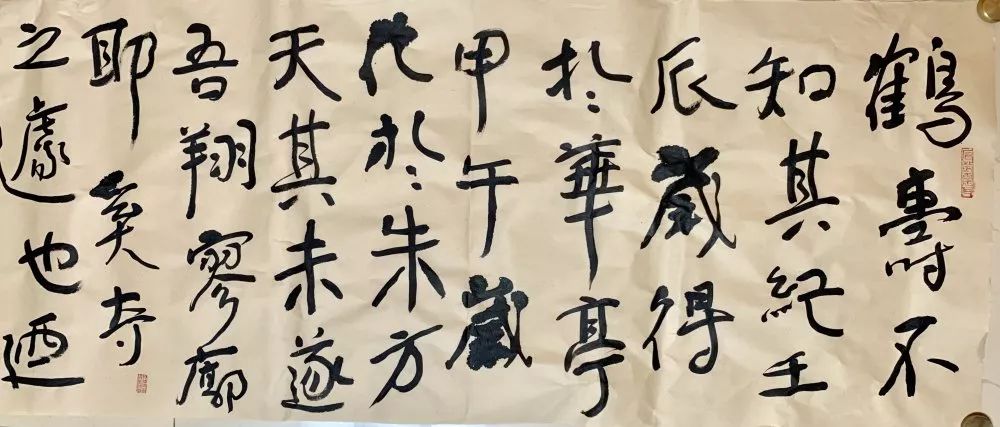 鶴壽不
知其紀壬
辰歲得
於華亭
甲午歲
化於朱方
天其未遂
吾翔寥廓
耶奚夺
之遽也迺